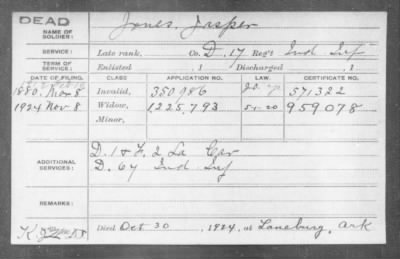 DEAD
NAME OF SOLDIER: Jones, Jasper
SERVICE: Late rank, Co. D. 17 Reg't Ind Inf
TERM OF SERVICE: Enlisted , 1 Discharged , 1
DATE OF FILING. CLASS APPLICATION NO. LAW. CERTIFICATE NO.
1880. Nov 8 Invalid, 350986 571322
1924 Nov 8 Widow, 1225.793 5-1-20 959078
Minor,
ADDITIONAL SERVICES: D. 1 & F. 2 La Cav
D. 64 Ind Inf
REMARKS:
Died Oct 30 , 1924, at Laneburg, Ark